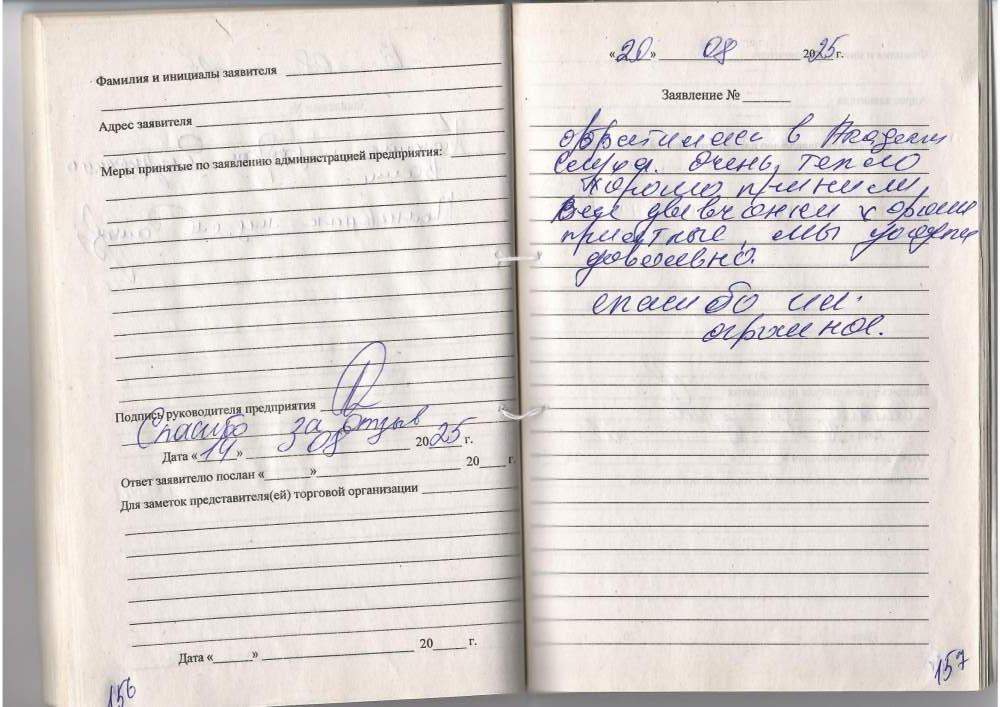 Фамилия и инициалы заявителя
Адрес заявителя
Меры принятые по заявлению администрацией предприятия:
Подпись руководителя предприятия
Спасибо за отзыв
Дата «14» 08 2025 г.
Ответ заявителю послан «» 20 г.
Для заметок представителя(ей) торговой организации
Дата «» 20 г.
156
«20» 08 2025г.
Заявление №
обратилась в Академи
Слуха. очень тепло
хорошо приняли
Веде двевчонки хороши
приятные, мы
довольно.
спасибо
огромное.
157